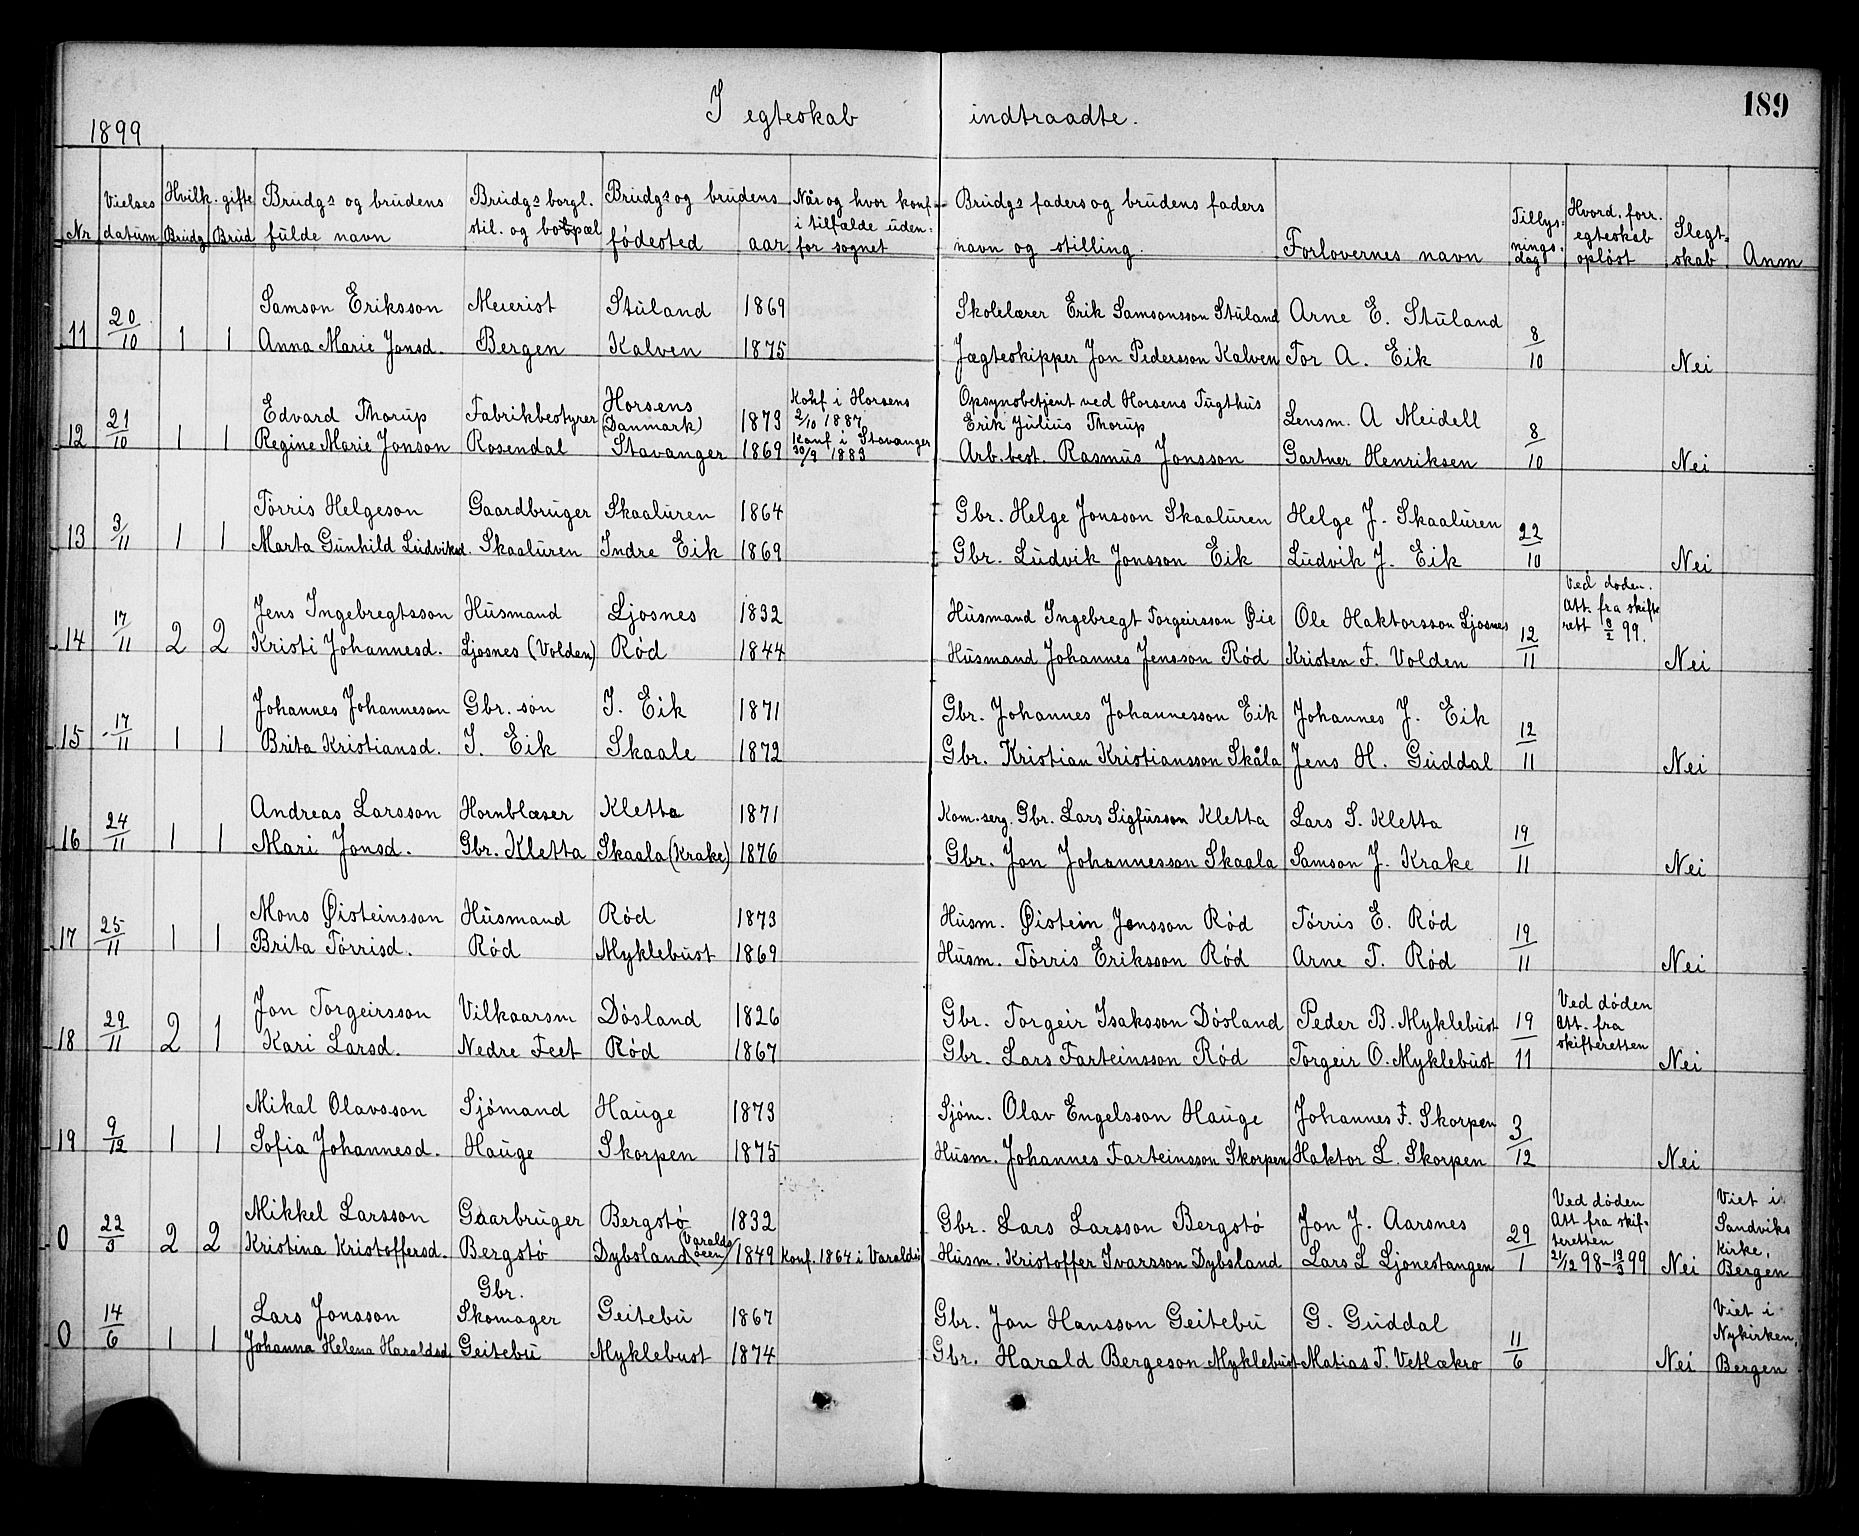 1899 I egteskab indtraadte. 189
Nr Vielses datum Hvilk. gifte Brudg Brud Brudgs og brudens fulde navn Brudgs borgl. stil. og bopæl Brudgs og brudens fødested aar Når og hvor konf. i tilfælde uden- for sognet Brudgs faders og brudens faders navn og stilling. Forlovernes navn Tillys- nings- dag Hvord. forr. egteskab opløst Slegt- skab Anm
Samson Eriksson Meierist Stuland 1869 Skolelærer Erik Samsonsson Stuland Arne E. Stuland
11 20/10 1 1 Anna Marie Jonsd. Bergen Kalven 1875 Jægteskipper Jon Pedersson Kalven Tor A. Eik 8/10 Nei
Edvard Thorup Fabrikbestyrer Horsens (Danmark) 1873 Konf i Horsens 2/10 1887 Opsynsbetjent ved Horsens Tugthus Erik Julius Thorup Lensm. A Meidell
12 21/10 1 1 Regine Marie Jonson Rosendal Stavanger 1869 Konf. i Stavanger 30/9 1883 Arb.best. Rasmus Jonsson Gartner Henriksen 8/10 Nei
Tørris Helgeson Gaardbruger Skaaluren 1864 Gbr. Helge Jonsson Skaaluren Helge J. Skaaluren
13 3/11 1 1 Marta Gunhild Ludviksd. Skaaluren Indre Eik 1869 Gbr. Ludvik Jonsson Eik Ludvik J. Eik 22/10 Nei
Jens Ingebregtsson Husmand Ljosnes 1832 Husmand Ingebregt Torgeirsson Øie Ole Haktorsson Ljosnes Ved døden. Att. fra skifte rett 8/2 99.
14 17/11 2 2 Kristi Johannesd. Ljosnes (Volden) Rød 1844 Husmand Johannes Jensson Rød Kristen F. Volden 12/11 Nei
Johannes Johanneson Gbr. søn I. Eik 1871 Gbr. Johannes Johannesson Eik Johannes J. Eik
15 17/11 1 1 Brita Kristiansd. I. Eik Skaale 1872 Gbr. Kristian Kristiansson Skåla Jens H. Guddal 12/11 Nei
Andreas Larsson Hornblæser Kletta 1871 Kom.serg. Gbr. Lars Sigfusson Kletta Lars S. Kletta
16 24/11 1 1 Mari Jonsd. Gbr. Kletta Skaala (Krake) 1876 Gbr. Jon Johannesson Skaala Samson J. Krake 19/11 Nei
Mons Øisteinsson Husmand Rød 1873 Husm. Øistein Jensson Rød Tørris E. Rød
17 25/11 1 1 Brita Tørrisd. Rød Myklebust 1869 Husm. Tørris Eriksson Rød Arne T. Rød 19/11 Nei
Jon Torgeirsson Vilkaarsm Døsland 1826 Gbr. Torgeir Isaksson Døsland Peder B. Myklebust Ved døden Att. fra skifteretten
18 29/11 2 1 Kari Larsd. Nedre Feet Rød 1867 Gbr. Lars Farteinsson Rød Torgeir O. Myklebust 19/11 Nei
Mikal Olavsson Sjømand Hauge 1873 Sjøm. Olav Engelsson Hauge Johannes F. Skorpen
19 9/12 1 1 Sofia Johannesd. Hauge Skorpen 1875 Husm. Johannes Farteinsson Skorpen Haktor L. Skorpen 3/12 Nei
Mikkel Larsson Gaarbruger Bergstø 1832 Gbr. Lars Larsson Bergstø Jon J. Aarsnes Ved døden Att fra skif- teretten 21/12 98 – 13/3 99 Viet i Sandviks kirke, Bergen
0 22/3 2 2 Kristina Kristoffersd. Bergstø Dybsland (Varalds øen) 1849 Konf. 1864 i Varaldsø Husm. Kristoffer Ivarsson Dybsland Lars L Ljonestangen 29/1 Nei
Lars Jonsson Gbr. Skomager Geitebu 1867 Gbr. Jon Hansson Geitebu G. Guddal Viet i Nykirken, Bergen
0 14/6 1 1 Johanna Helena Haraldsd Geitebu Myklebust 1874 Gbr. Harald Bergeson Myklebust Matias T. Vetlakro 11/6 Nei